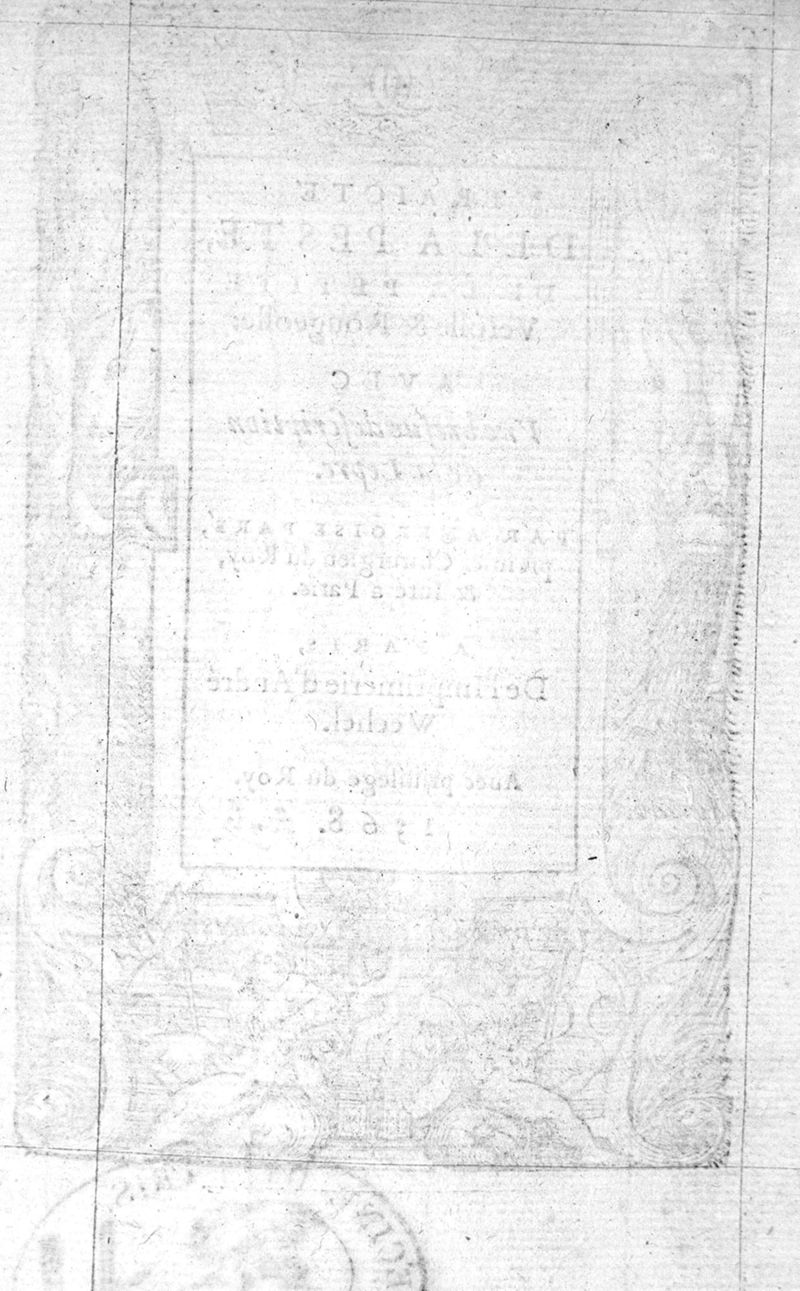 TRAICTE
DE LA PESTE,
DE LA PETITE
Verolle & Rougeolle:
AVEC
Vne brefue description
de la Lepre.
PAR AMBROISE PARE',
premier Chirurgien du Roy,
& Iuré à Paris.
A PARIS,
De l'Imprimerie d'André
Wechel.
Auec priuilege du Roy.
1568.